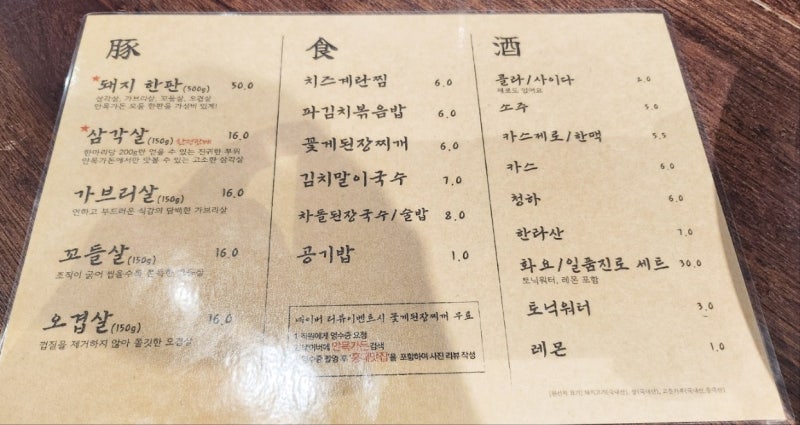 豚
*돼지 한판(500g) 50.0
삼각살, 가브리살, 꼬들살, 오겹살
만복가든 모듬 한판을 가성비 있게!
*삼각살(150g) 한정판매 16.0
한마리당 200g만 얻을 수 있는 진귀한 부위
만복가든에서만 맛볼 수 있는 고소한 삼각살
가브리살(150g) 16.0
연하고 부드러운 식감의 담백한 가브리살
꼬들살(150g) 16.0
조직이 굵어 씹을수록
오겹살(150g) 16.0
껍질을 제거하지 않아 쫄깃한 오겹살
食
치즈계란찜 6.0
파김치볶음밥 6.0
꽃게된장찌개 6.0
김치말이국수 7.0
차돌된장국수/술밥 8.0
공기밥 1.0
네이버 리뷰이벤트시 꽃게된장찌개 무료
1.직원에게 영수증 요청
검색
영수증 촬영 후 을 포함하여 사진 리뷰 작성
酒
콜라/사이다 2.0
제로도 있어요
소주 5.0
카스제로/한맥 5.5
카스 6.0
청하 6.0
한라산 7.0
화요/일품진로 세트 30.0
토닉워터, 레몬 포함
토닉워터 3.0
레몬 1.0